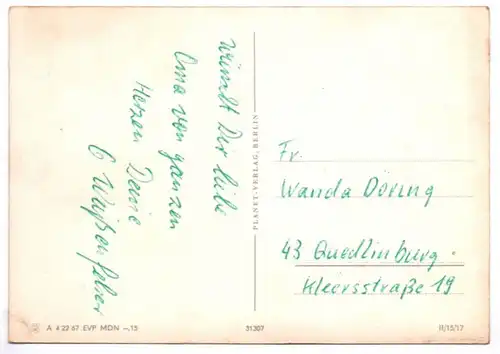 wünscht Dir liebe
Oma von ganzen
Herzen Deine
6 Weißenfelser
PLANET-VERLAG, BERLIN
Fr.
Wanda Döring
43 Quedlinburg.
Kleersstraße 19
A 4 22 67 EVP MDN -,15
31307
II/15/17